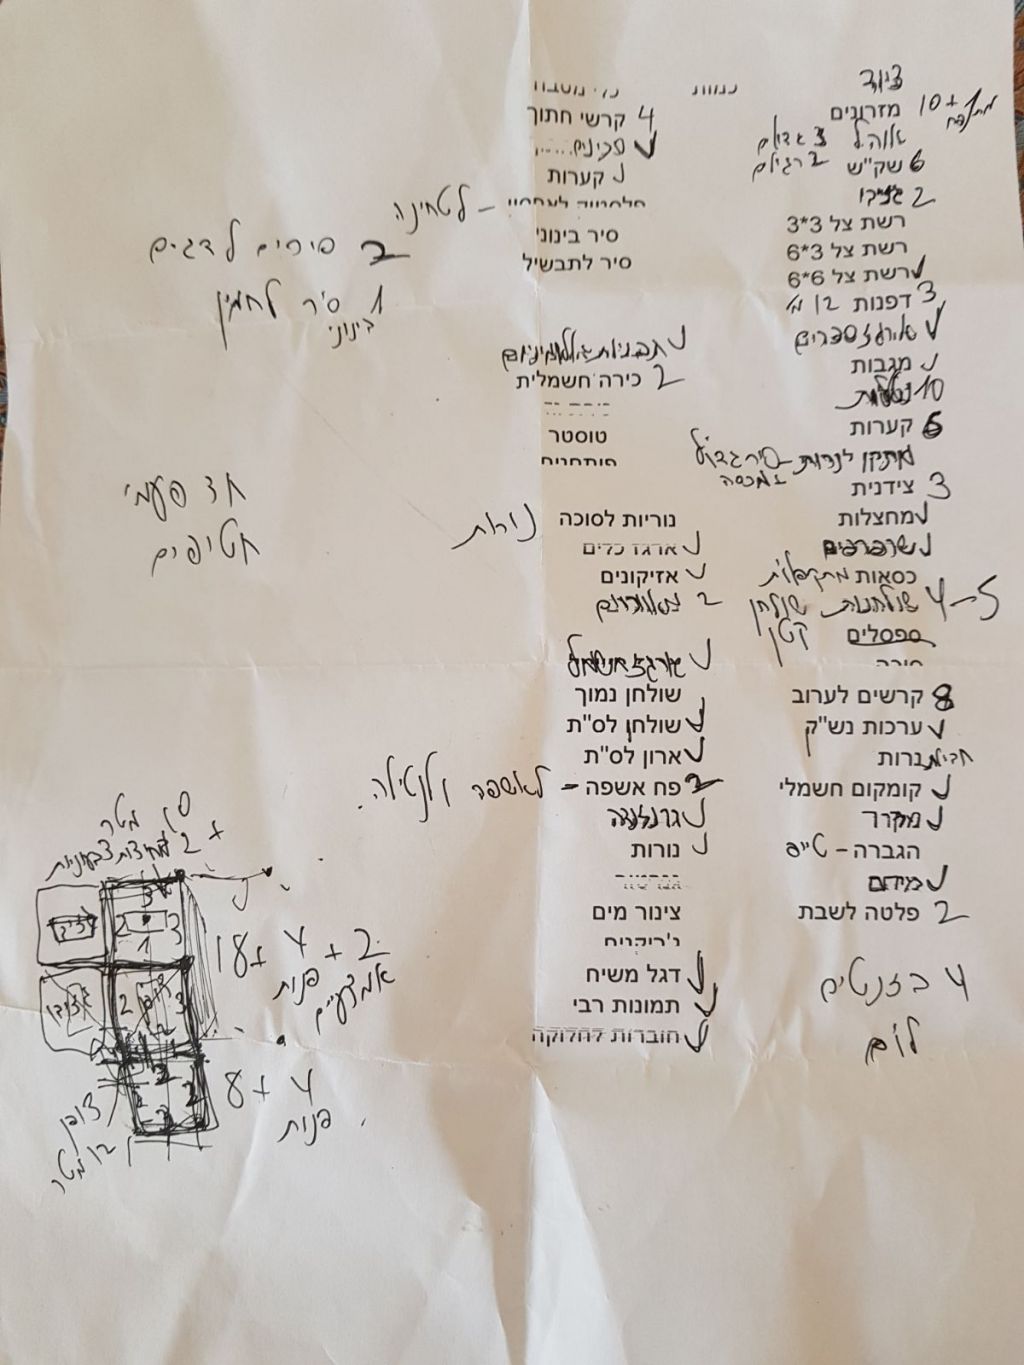 ציוד
מזרונים 10 + מתנפח
אוהל 3 גדולים
6 שק"ש 2 רגילים
2 גזיבו
רשת צל 3*3
רשת צל 3*6
רשת צל 6*6
3 דפנות 12 מ'
ארגז ספרים
מגבות
10
6 קערות
מתקן לנרות - סיר גדול
במכסה
3 צידנית
מחצלות
שרפרפים
כסאות מתקפלות
4-5 שולחנות שולחן
ספסלים קטן
8 קרשים לערוב
ערכות נש"ק
נרות חבילת
קומקום חשמלי
מקרר
הגברה - טייפ
מיחם
2 פלטה לשבת
4 בזנטים
לום
כמות
כלי מטבח
4 קרשי חתוך
סכינים
קערות
- לטחינה
סיר בינוני
סיר לתבשיל
תבניות אלומיניום
2 כירה חשמלית
טוסטר
פותחנים
נוריות לסוכה נורות
ארגז כלים
אזיקונים
2
ארגז חשמל
שולחן נמוך
שולחן לס"ת
ארון לס"ת
2 פח אשפה - לאשפה ולנטילה.
גרלנדה
נורות
צינור מים
ג'ריקנים
דגל משיח
תמונות רבי
חוברות לחלוקה
2 סירים לדגים
1 סיר לחמין
בינוני
חד פעמי
חטיפים
מטר
+ 2 מחיצות צבעוניות
גזיבו 2 3 3
1
18 + 4 + 2
פנות
אמצעיים
גזיבו 2 3
8 + 4
פנות
דופן
12 מטר